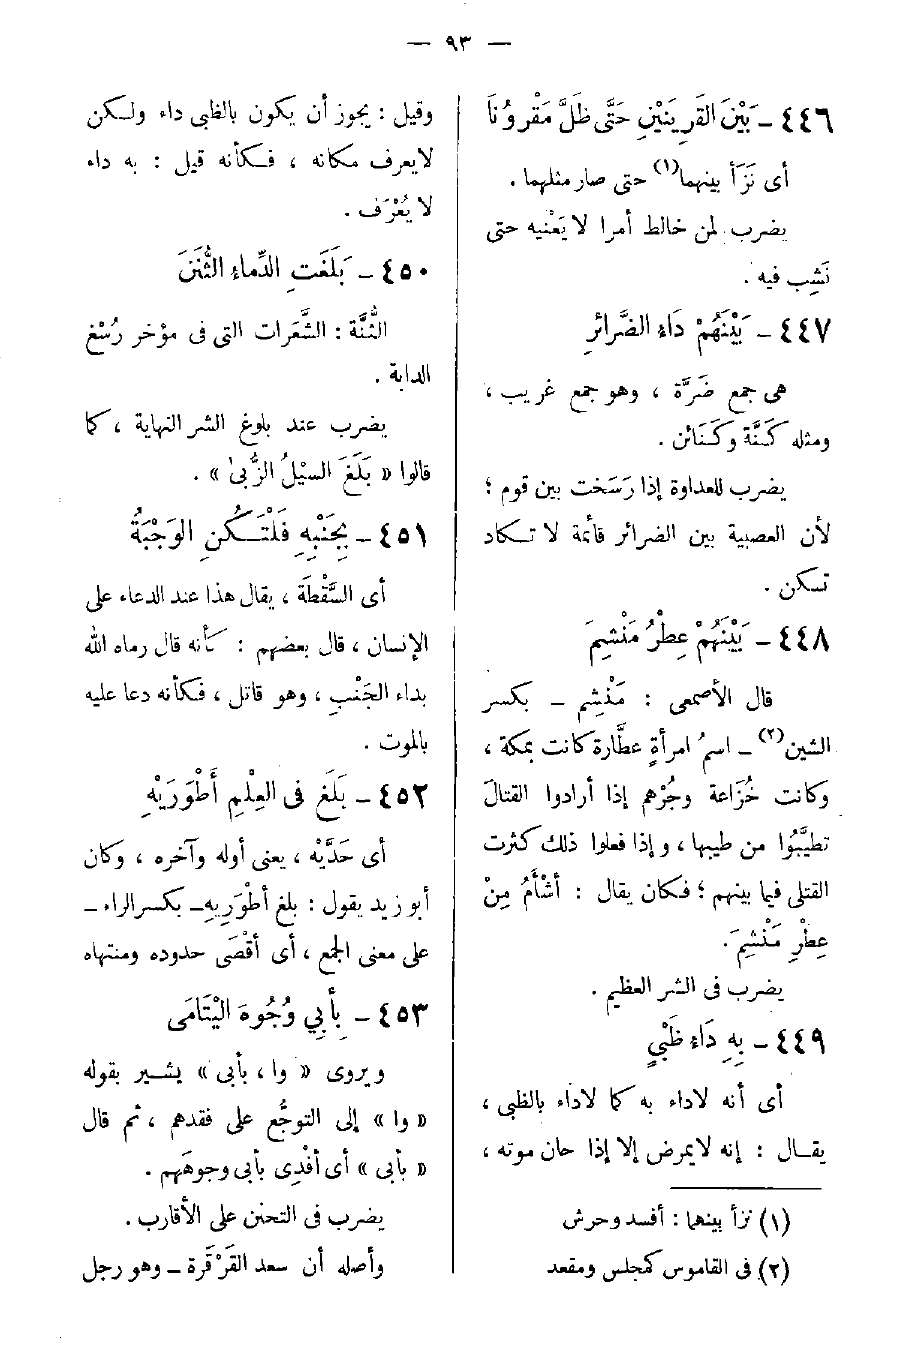 — ٩٣ —
٤٤٦ – بَيْنَ القَرِينَيْنِ حَتَّى ظَلَّ مَقْرُونَا
أى نَزَأ بينهما(١) حتى صار مثلهما .
يضرب لمن خالط أمرا لا يَعْنيه حتى
نَشِب فيه .
٤٤٧ – بَيْنَهُمْ دَاء الضَّرائرِ
هى جمع ضَرَّة ، وهو جمع غريب ،
ومثله كَنَّة وكَنَائن .
يضرب للعداوة إذا رَسَخت بين قوم ؛
لأن العصبية بين الضرائر قائمة لا تكاد
تسكن .
٤٤٨ – بَيْنَهُمْ عِطْرُ مَنْشِمَ
قال الأصمعى : مَنْشِم – بكسر
الشين(٢) – اسمُ امرأةٍ عطَّارة كانت بمكة ،
وكانت خُزَاعة وجُرْهم إذا أرادوا القتالَ
تطيَّبُوا من طيبها ، وإذا فعلوا ذلك كثرت
القتلى فيما بينهم ؛ فكان يقال : أشْأَمُ مِنْ
عِطْرِ مَنْشِمَ .
يضرب فى الشر العظيم .
٤٤٩ – بِهِ دَاء ظَبْيٍ
أى أنه لاداء به كما لاداء بالظبى ،
يقال : إنه لايمرض إلا إذا حان موته ،
(١) نزأ بينهما : أفسد وحرش
(٢) فى القاموس كمجلس ومقعد
وقيل : يجوز أن يكون بالظبى داء ولكن
لايعرف مكانه ، فكأنه قيل : به داء
لا يُعْرَف .
٤٥٠ – بَلَغَتِ الدِّماء الثُّنَنَ
الثُّنَّة : الشَّعَرات التى فى مؤخر رُسْغ
الدابة .
يضرب عند بلوغ الشر النهاية ، كما
قالوا « بَلَغَ السيْلُ الزُّبىٰ » .
٤٥١ – بِجَنْبِهِ فَلْتَكُنِ الوَجْبَةُ
أى السَّقْطَة ، يقال هذا عند الدعاء على
الإنسان ، قال بعضهم : كأنه قال رماه الله
بداء الجَنْبِ ، وهو قاتل ، فكأنه دعا عليه
بالموت .
٤٥٢ – بَلَغَ فى العِلْمِ أَطْوَرَيْهِ
أى حَدَّيْه ، يعنى أوله وآخره ، وكان
أبو زيد يقول : بلغ أطْوَرِيهِ– بكسرالراء –
على معنى الجمع ، أى أقْصَى حدوده ومنتهاه
٤٥٣ – بِأَبِي وُجُوهَ الْيَتَامَى
ويروى « وا ، بأبى » يشير بقوله
« وا » إلى التوجُّع على فقدهم ، ثم قال
« بأبى » أى أفْدِى بأبى وجوهَهم .
يضرب فى التحنن على الأقارب .
وأصله أن سعد القَرْقَرة – وهو رجل